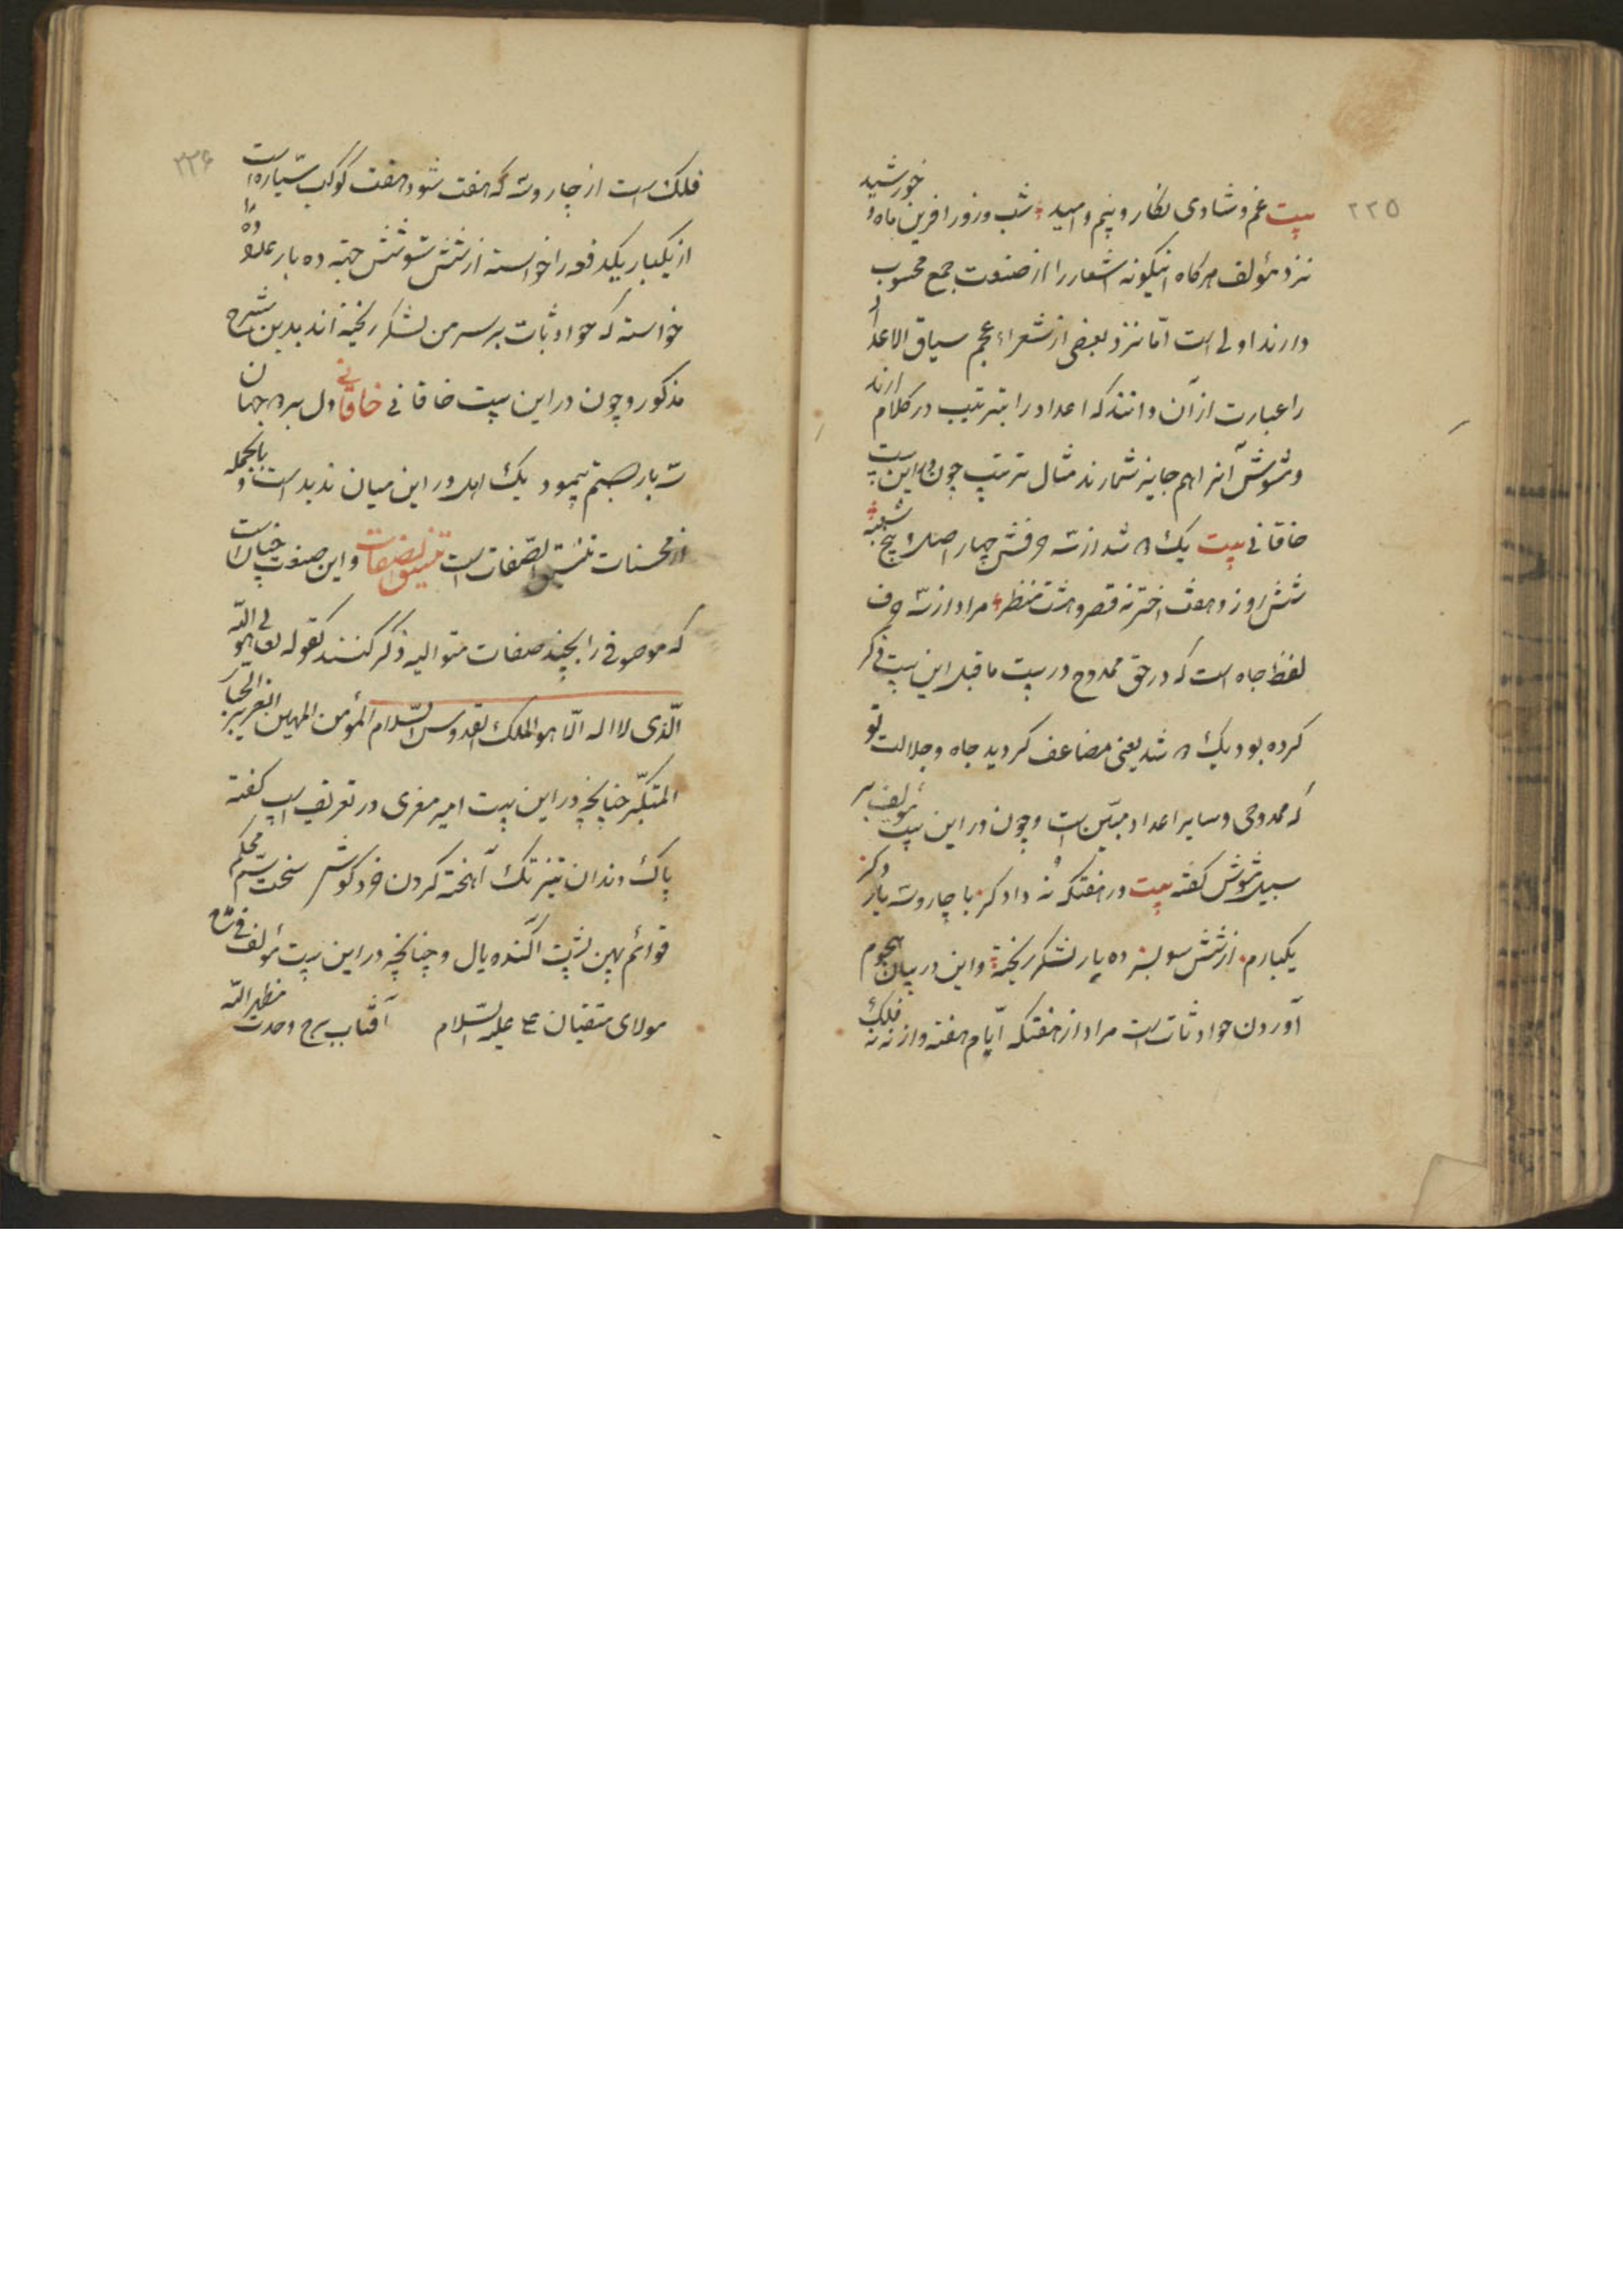 ۲۲۵
بیت غم و شادی نگار و بیم و امید شب و روز آفرین ماه و خورشید
نزد مؤلف هرگاه اینگونه اشعار را از صنعت جمع محسوب
دارند اولی است امّا نزد بعضی از شعراء عجم سیاق الاعداد
را عبارت از آن دانند که اعداد را بترتیب در کلام ارند
و مشوش آنرا هم جایز شمارند مثال ترتیب چون این بیت
خاقانی بیت یک شد از سه حرفش چهار اصل و پنج شعبه
شش روز و هفت اختر نه قصر و هشت منظر مراد از سه حرف
لفظ جاه است که در حق ممدوح در بیت ما قبل این بیت ذکر
کرده بود یک شد یعنی مضاعف کردید جاه و جلالت تو
که ممدوحی و سایر اعداد مبیّن است و چون در این بیت مؤلف بر
سبیل مشوش کفته بیت در هفتکه نه داد کر با چار و سه یار
یکبارم از شش سو بسر ده بار لشکر ریخته و این در بیان هجوم
آوردن حوادثات است مراد از هفتکه ایّام هفته و از نه نه فلک
۲۲۶
فلک است از چار و سه که هفت شود هفت کوکب سیّاره است
از یکبار یکدفعه را خواسته از شش سو شش جهة ده بار عدد
خواسته که حوادثات بر سر من لشکر ریخته اند بدین شرح
مذکور و چون در این بیت خاقانی خاقانی دل بسر جهان
بار جستم پیمود یک اهل در این میان ندید است و بالجمله
از محسنات تنسیق الصّفات است تنسیق الصفات و این صنعت چنان است
که موصوفی را بچند صفات متوالیه ذکر کنند کقوله تعالی هو اللّه
الّذی لا اله الّا هو الملک القدوس السّلام المؤمن المهیمن العزیز الجبّار
المتکبّر چنانچه در این بیت امیر معزی در تعریف اسب کفته
پاک دندان تیز تک آهخته کردن خرد کوش سخت سم محکم
قوائم پهن پشت آکنده یال و چنانچه در این بیت مؤلف فی مدح
مولای متقیان ع علیه السّلام آفتاب برج وحدت مظهر اللّه